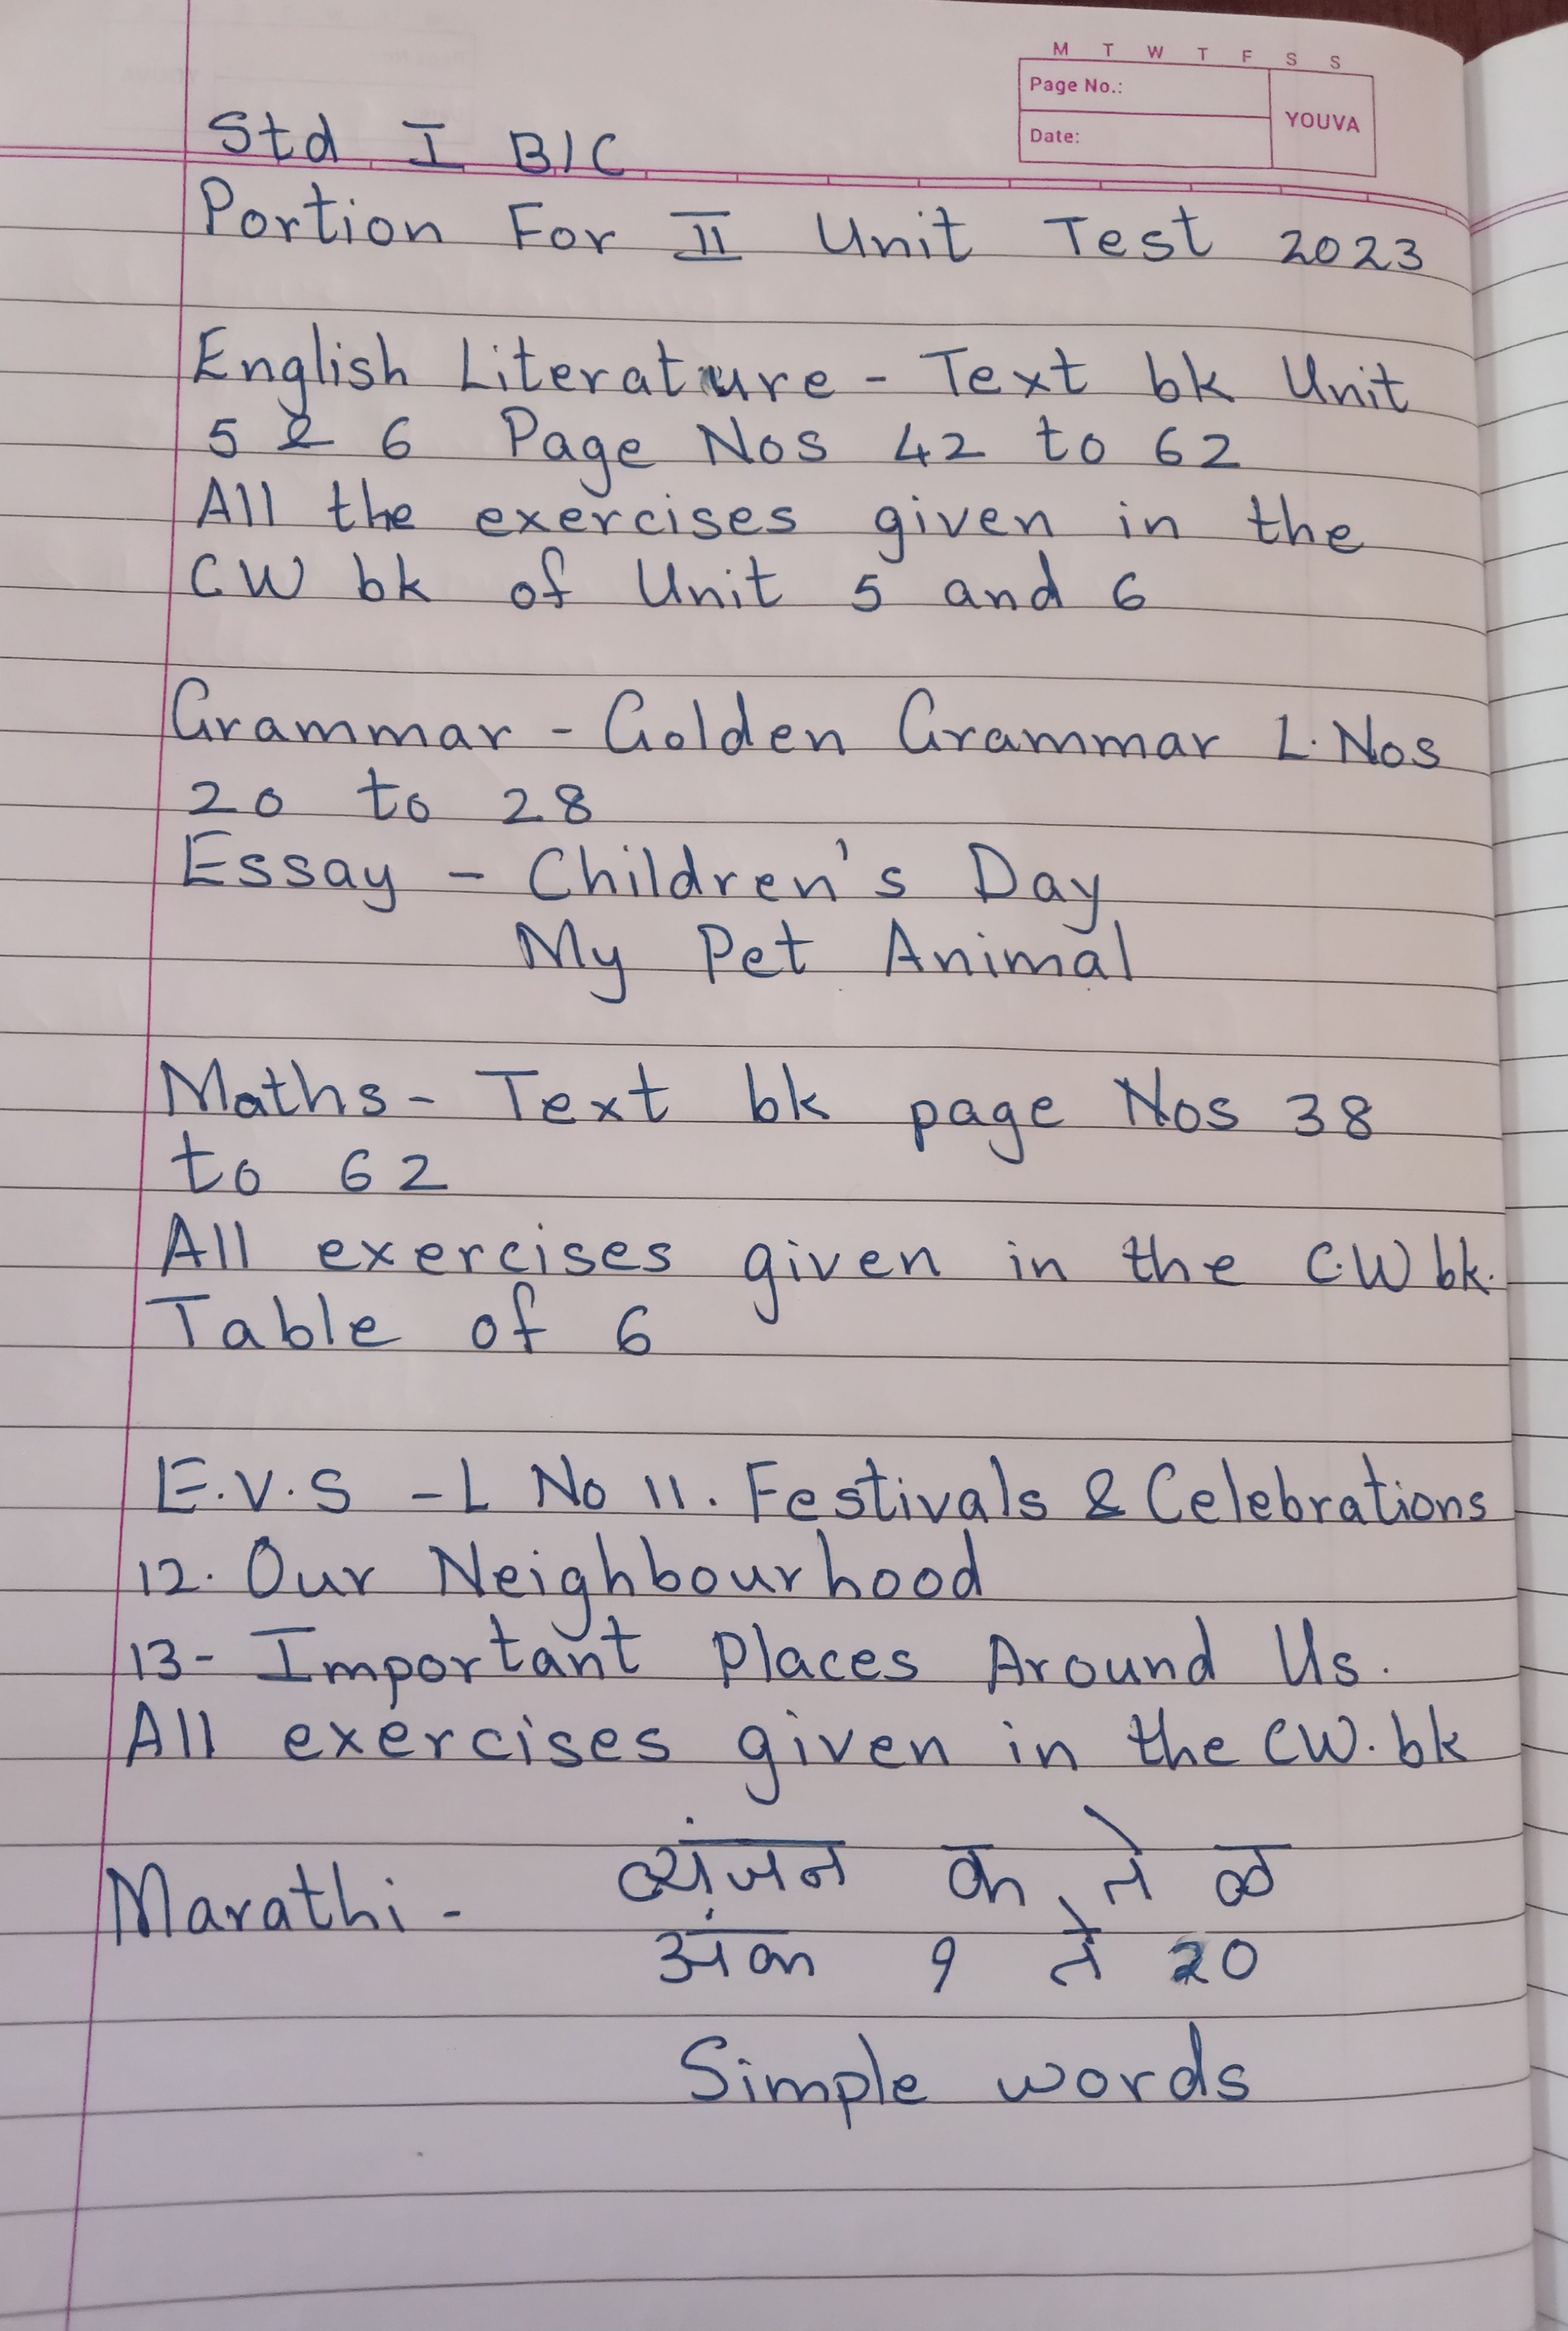 M T W T F S S
Page No.:
YOUVA
Date:
Std I B/C
Portion For II Unit Test 2023
English Literature - Text bk Unit
5 & 6 Page Nos 42 to 62
All the exercises given in the
CW bk of Unit 5 and 6
Grammar - Golden Grammar L. Nos
20 to 28
Essay - Children's Day
My Pet Animal
Maths - Text bk page Nos 38
to 62
All exercises given in the C.W bk.
Table of 6
E.V.S - L No 11. Festivals & Celebrations
12. Our Neighbourhood
13- Important Places Around Us.
All exercises given in the CW. bk
Marathi - व्यंजन क ते ळ
अंक १ ते २०
Simple words